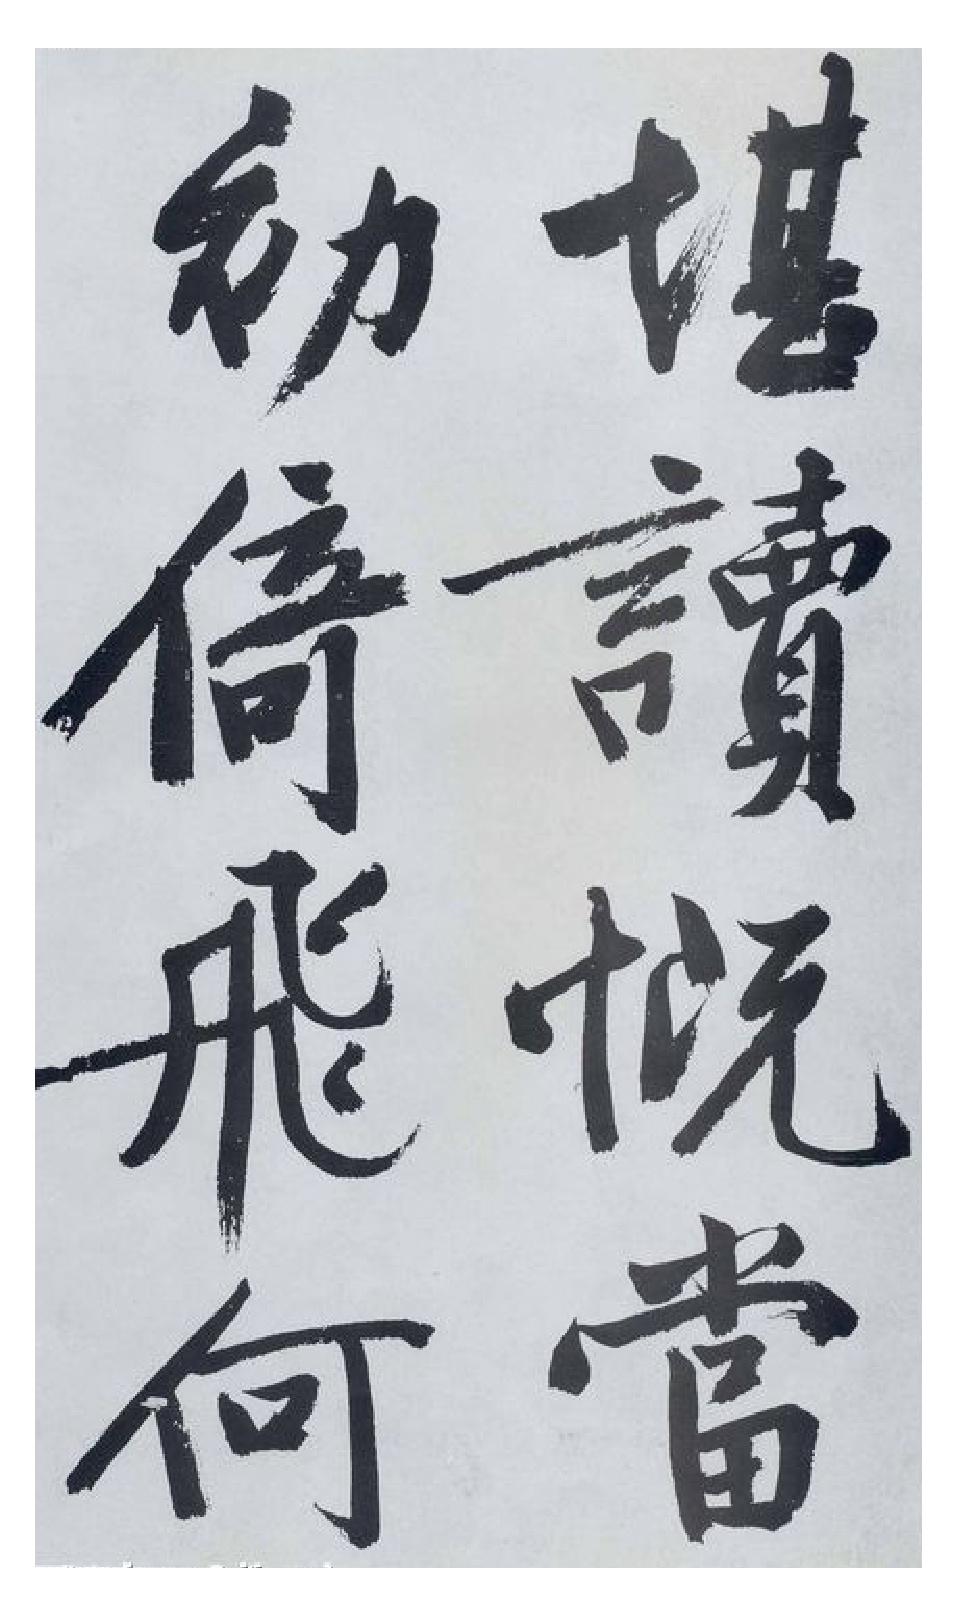 堪讀慨當
幼倚飛何